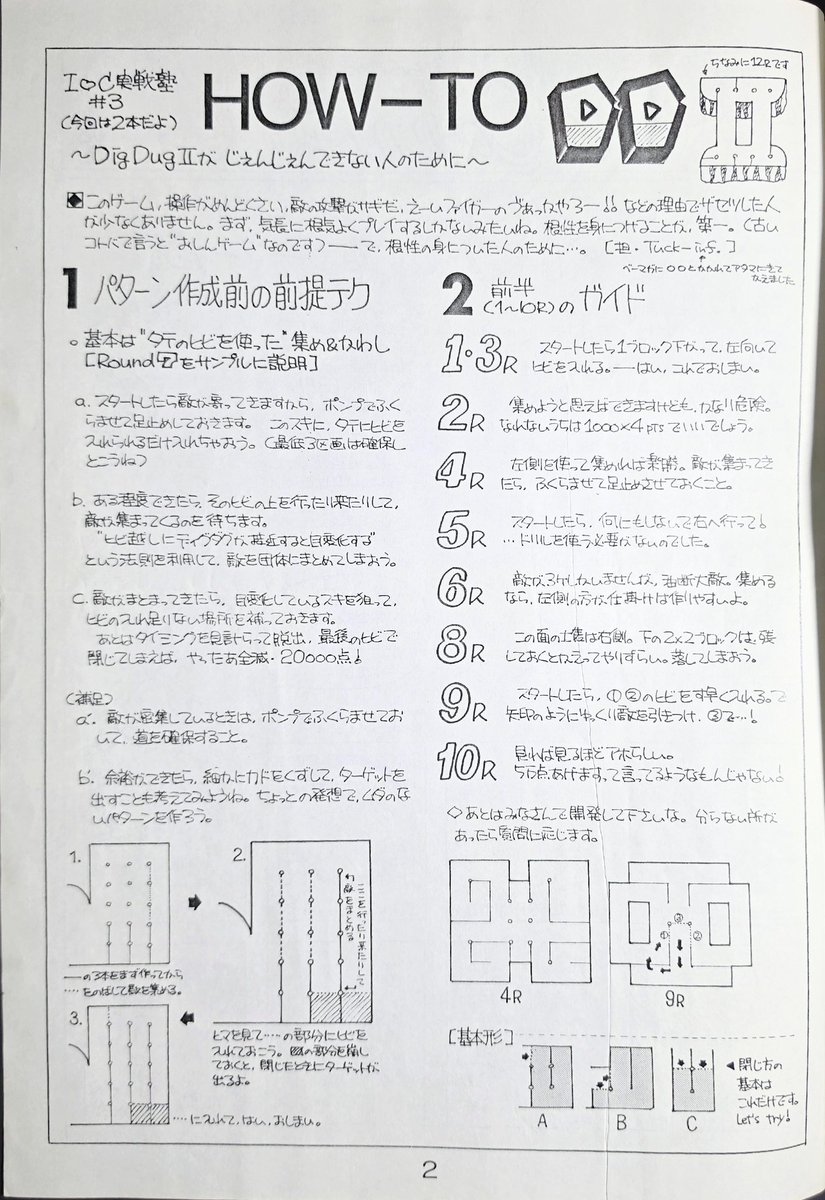 I♡C実戦塾
#3
(今回は2本だよ)
HOW-TO DD
ちなみに12Rです
〜DigDugⅡが じぇんじぇんできない人のために〜
◆このゲーム、操作がめんどくさい、敵の攻撃がサギだ、えーいファイガーのヴぁっかやろー!! などの理由でザセツした人
が少なくありません。まず、気長に根気よくプレイするしかないみたいね。根性を身につけることが、第一。(古い
コトバで言うと"おしんゲーム"なのです)——で、根性の身についた人のために…。 [担・Tuck-inS.]
ベーマガに〇〇とかかれてアタマにきて
かえました
1 パターン作成前の前提テク
○ 基本は"タテのヒビを使った"集め&かわし
[Round 2をサンプルに説明]
a. スタートしたら敵が寄ってきますから、ポンプでふく
らませて足止めしておきます。 このスキに、タテにヒビを
入れられるだけ入れちゃおう。(最低3区画は確保し
とこうね)
b. ある程度できたら、そのヒビの上を行ったり来たりして、
敵が集まってくるのを待ちます。
"ヒビ越しにディグダグが接近すると目変化する"
という法則を利用して、敵を団体にまとめてしまおう。
c. 敵がまとまってきたら、目変化しているスキを狙って、
ヒビの入れ足りない場所を補っておきます。
あとはタイミングを見計らって脱出、最後のヒビで
閉じてしまえば、やったあ全滅・20000点!
(補足)
a'. 敵が密集しているときは、ポンプでふくらませてお
いて、道を確保すること。
b'. 余裕ができたら、細かにカドをくずして、ターゲットを
出すことも考えてみようね。ちょっとの発想で、ムダのな
いパターンを作ろう。
1.
——の3本をまず作ってから
……をのばして敵を集める。
2.
ここを行ったり来たりして
敵をまとめる
ヒマを見て……の部分にヒビを
入れておこう。▨の部分を残し
ておくと、閉じたときにターゲットが
出るよ。
3.
……に入れて、はい、おしまい。
2 前半
(1〜10R)の ガイド
1・3R スタートしたら1ブロック下がって、左向いて
ヒビを入れる。——はい、コレでおしまい。
2R 集めようと思えばできますけども、かなり危険。
なれないうちは1000×4ptsでいいでしょう。
4R 左側を使って集めれば楽勝。敵が集まってき
たら、ふくらませて足止めさせておくこと。
5R スタートしたら、何にもしないで右へ行って!
…ドリルを使う必要がないのでした。
6R 敵が3匹しかいませんが、油断大敵。集める
なら、左側の方が仕掛けは作りやすいよ。
8R この面の土俵は右側。下の2×2ブロックは、残
しておくとかえってやりずらい。落してしまおう。
9R スタートしたら、①②のヒビをす早く入れる。で
矢印のようにゆっくり敵を引きつけ、③で…!
10R 見れば見るほどアホらしい。
5万点あげますって言ってるようなもんじゃない!
◇あとはみなさんで開発して下さいな。分らない所が
あったら質問に応じます。
4R
① ② ③
9R
[基本形]
A
B
C
◀閉じ方の
基本は
これだけです。
Let's try!
2